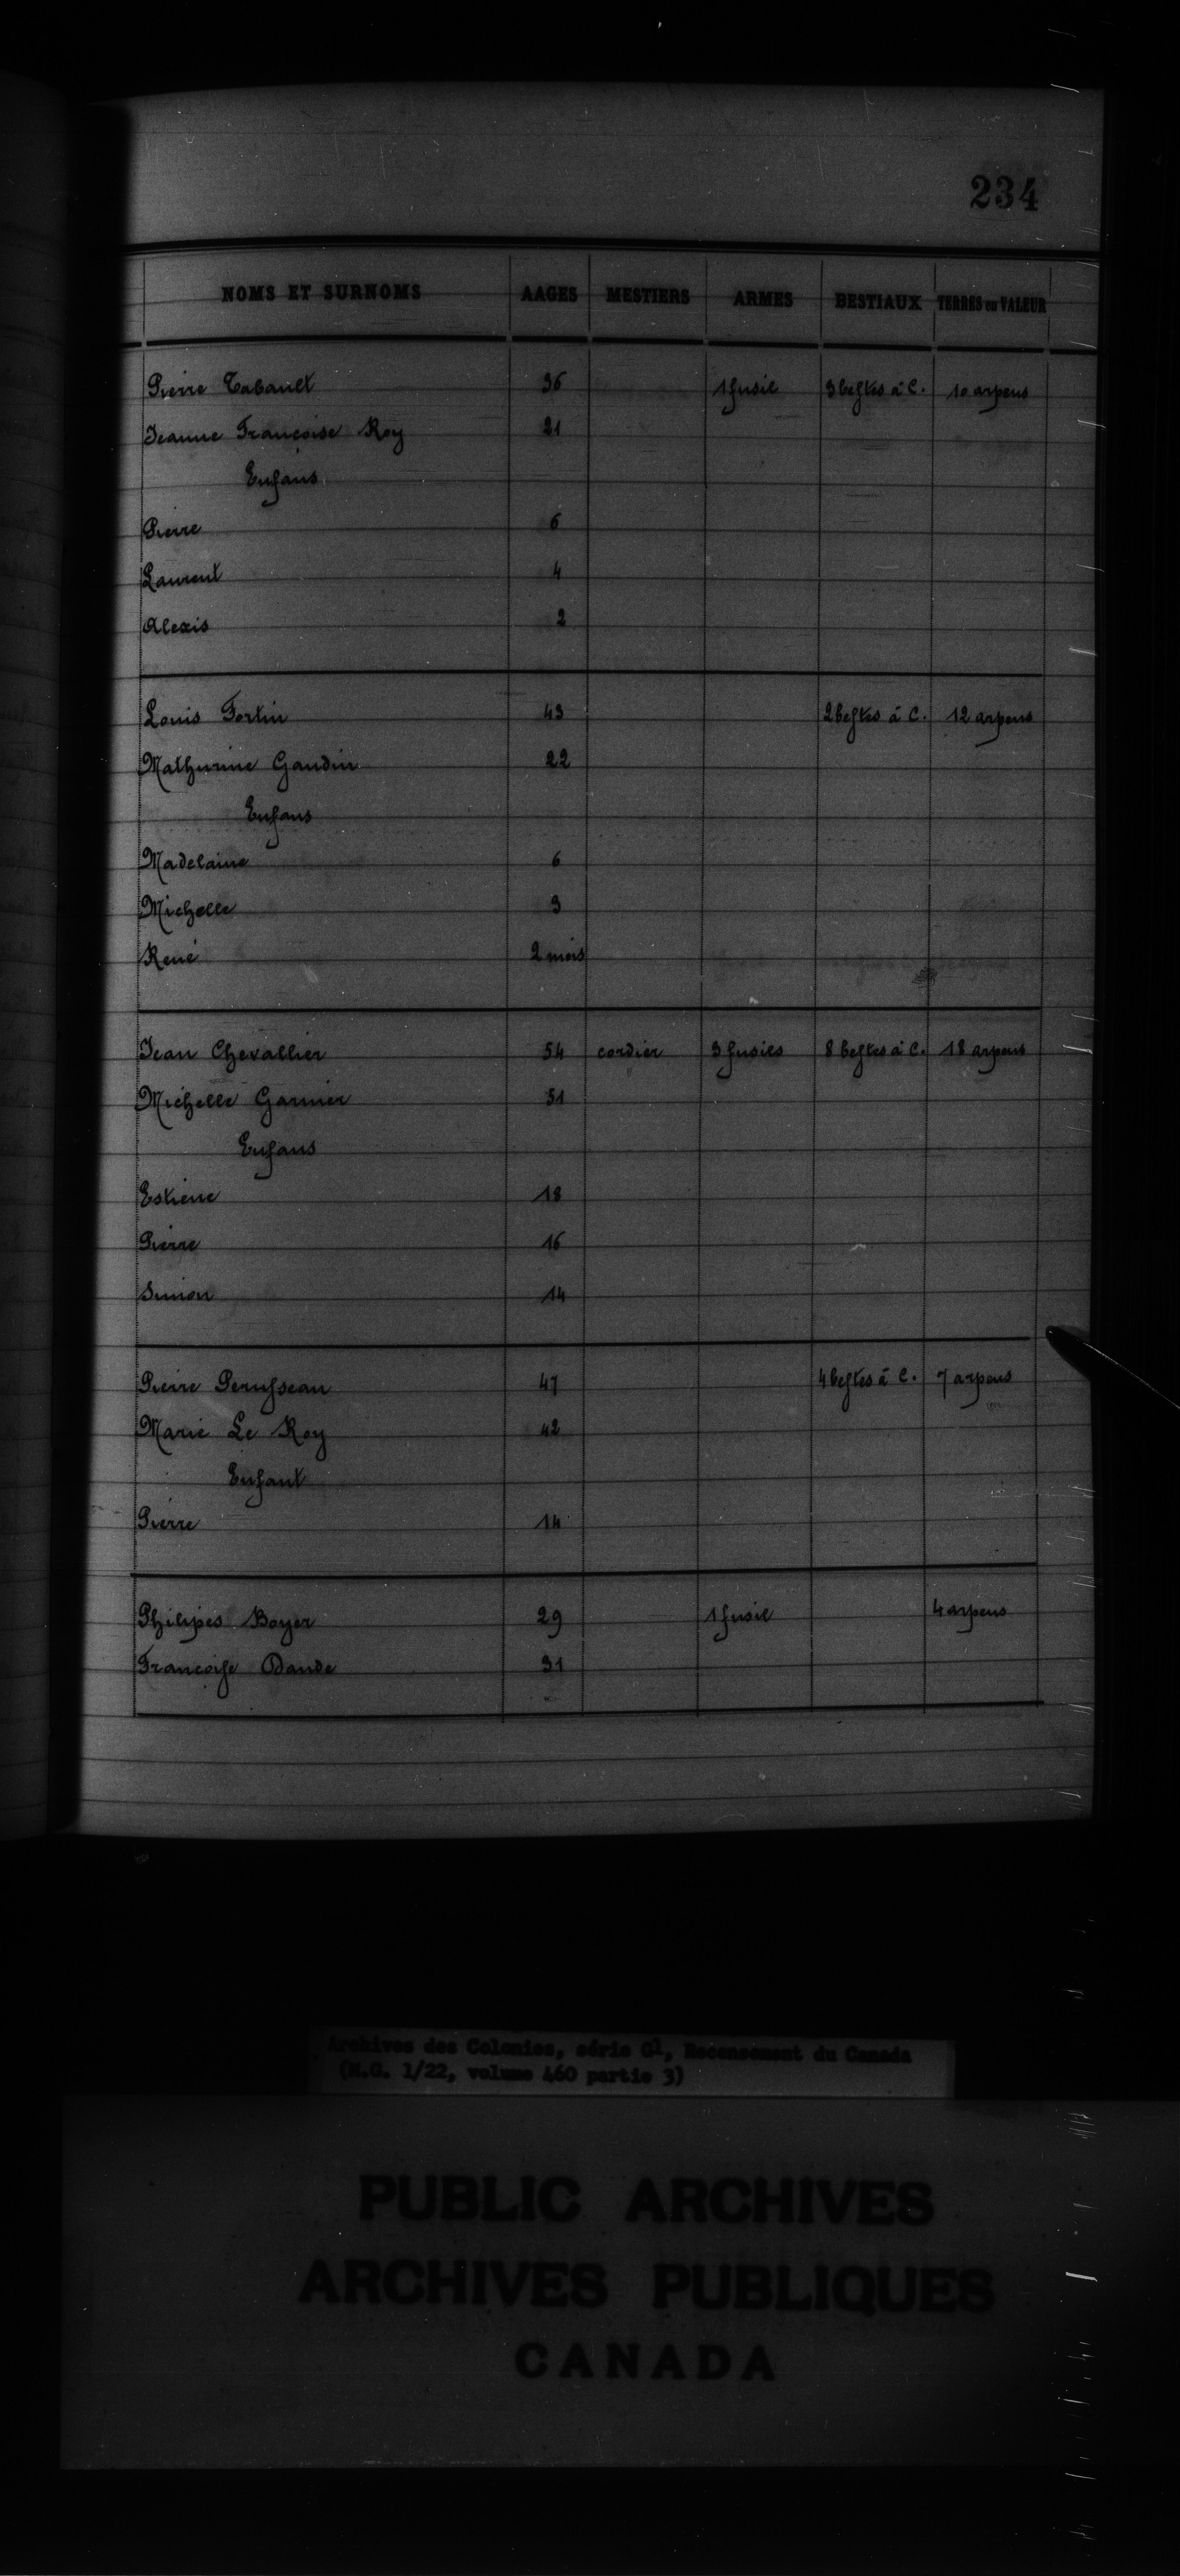 234
NOMS ET SURNOMS AAGES MESTIERS ARMES BESTIAUX TERRES en VALEUR
Pierre Tabault 36 1 fusil 3 bestes à C. 10 arpens
Jeanne Françoise Roy 21
Enfans
Pierre 6
Laurent 4
Alexis 2
Louis Fortin 43 2 bestes à C. 12 arpens
Mathurine Gaudin 22
Enfans
Madelaine 6
Michelle 3
René 2 mois
Jean Chevallier 54 cordier 3 fusils 8 bestes à C. 18 arpens
Michelle Garnier 51
Enfans
Estiene 18
Pierre 16
Simon 14
Pierre Perusseau 47 4 bestes à C. 7 arpens
Marie Le Roy 42
Enfant
Pierre 14
Philipes Boyer 29 1 fusil 4 arpens
Francoise Dande 31
Archives des Colonies, série G1, Recensement du Canada
(M.G. 1/22, volume 460 partie 3)
PUBLIC ARCHIVES
ARCHIVES PUBLIQUES
CANADA